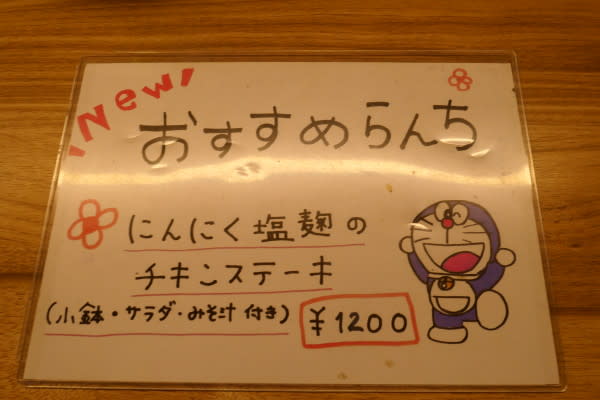 New
おすすめらんち
にんにく塩麹の
チキンステーキ
(小鉢・サラダ・みそ汁 付き)
¥1200